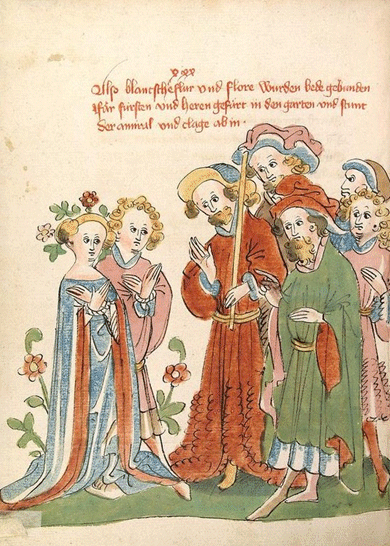 xxx
Also blantscheflur vnd flore wurden bede gebunden
für fürsten vnd heren gefürt in den garten vnd
der amiral vnd clage ab in ·